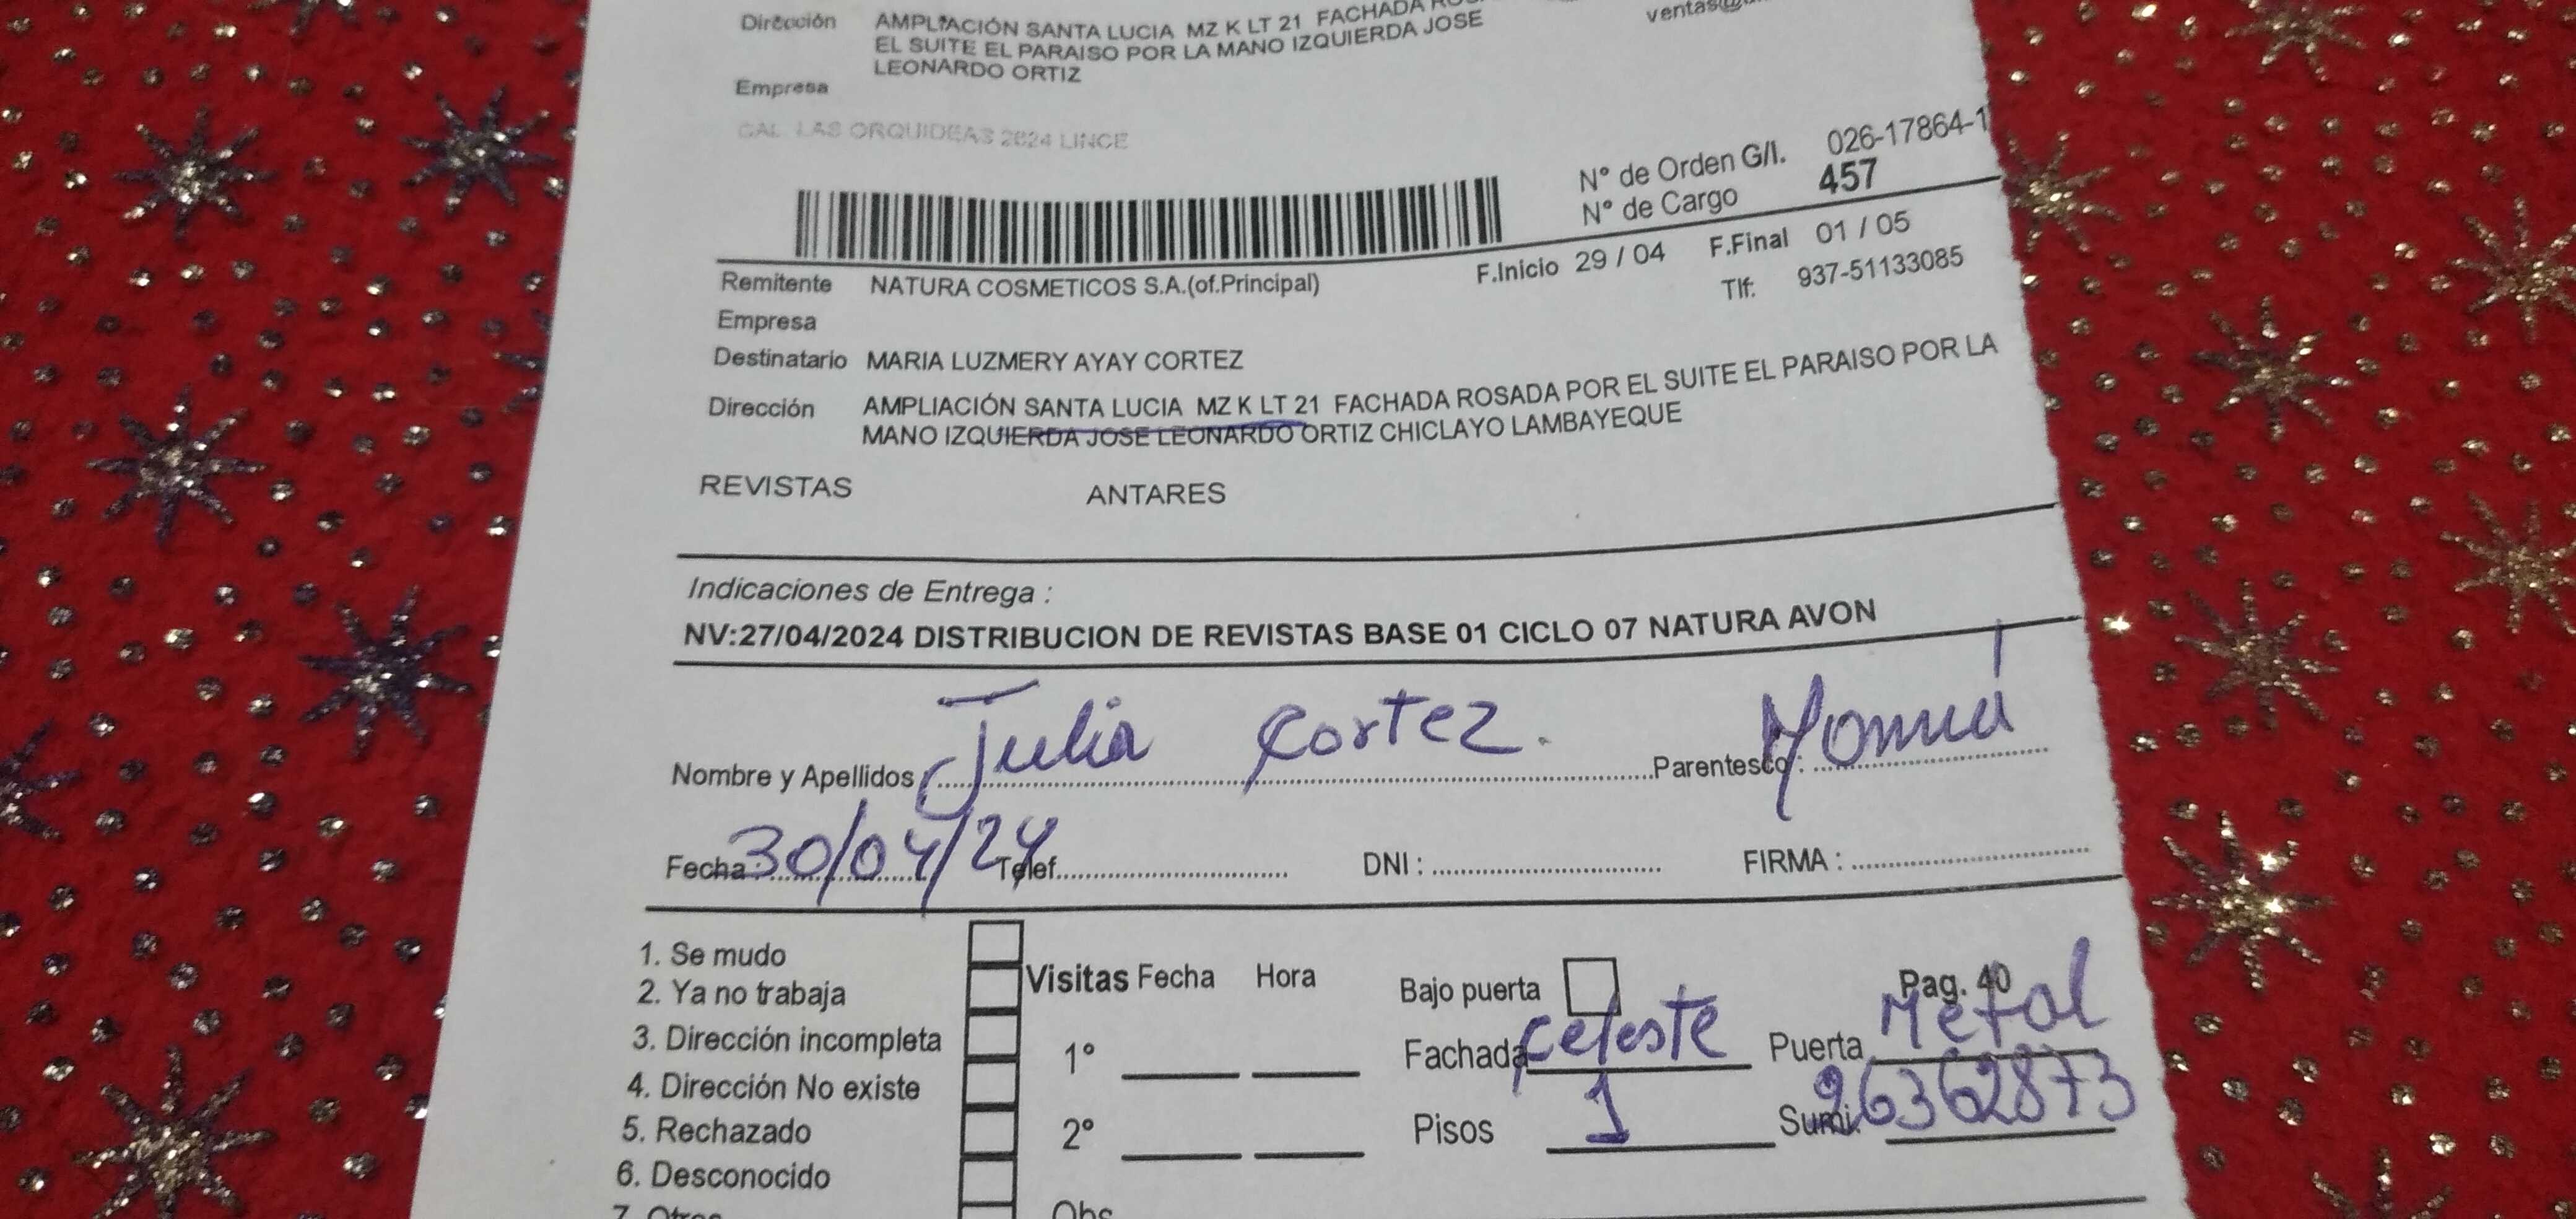 Dirección AMPLIACIÓN SANTA LUCIA MZ K LT 21 FACHADA
EL SUITE EL PARAISO POR LA MANO IZQUIERDA JOSE
LEONARDO ORTIZ
ventas@
Empresa
CAL. LAS ORQUIDEAS 2624 LINCE
N° de Orden G/I. 026-17864-1
N° de Cargo 457
Remitente NATURA COSMETICOS S.A.(of.Principal) F.Inicio 29 / 04 F.Final 01 / 05
Tlf: 937-51133085
Empresa
Destinatario MARIA LUZMERY AYAY CORTEZ
Dirección AMPLIACIÓN SANTA LUCIA MZ K LT 21 FACHADA ROSADA POR EL SUITE EL PARAISO POR LA
MANO IZQUIERDA JOSE LEONARDO ORTIZ CHICLAYO LAMBAYEQUE
REVISTAS ANTARES
Indicaciones de Entrega :
NV:27/04/2024 DISTRIBUCION DE REVISTAS BASE 01 CICLO 07 NATURA AVON
Nombre y Apellidos Julia Cortez. Parentesco : Momá
Fecha: 30/04/24 Telef. DNI : FIRMA :
1. Se mudo
2. Ya no trabaja
3. Dirección incompleta
4. Dirección No existe
5. Rechazado
6. Desconocido
7. Otros
Visitas Fecha Hora
1°
2°
Obs
Bajo puerta Pag. 40
Fachada celeste Puerta Metal
Pisos 1 Sumi. 26362873